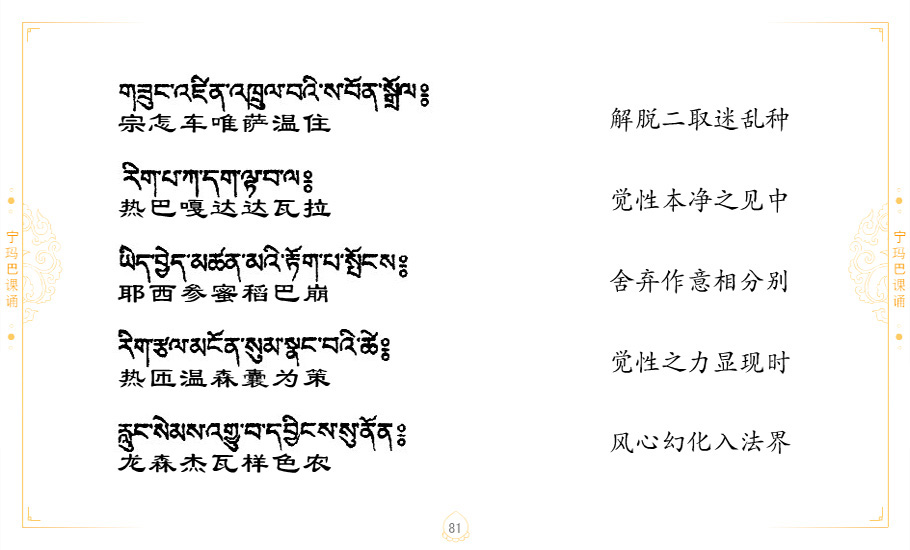 གཟུང་འཛིན་འཁྲུལ་བའི་ས་བོན་སྒྲོལ༔
宗怎车唯萨温住
解脱二取迷乱种
རིག་པ་ཀ་དག་ལྟ་བ་ལ༔
热巴嘎达达瓦拉
觉性本净之见中
ཡིད་བྱེད་མཚན་མའི་རྟོག་པ་སྤོངས༔
耶西参蜜稻巴崩
舍弃作意相分别
རིག་རྩལ་མངོན་སུམ་སྣང་བའི་ཚེ༔
热匝温森囊为策
觉性之力显现时
རླུང་སེམས་འགྱུ་བ་དབྱིངས་སུ་ནོན༔
龙森杰瓦样色农
风心幻化入法界
宁玛巴课诵
宁玛巴课诵
81